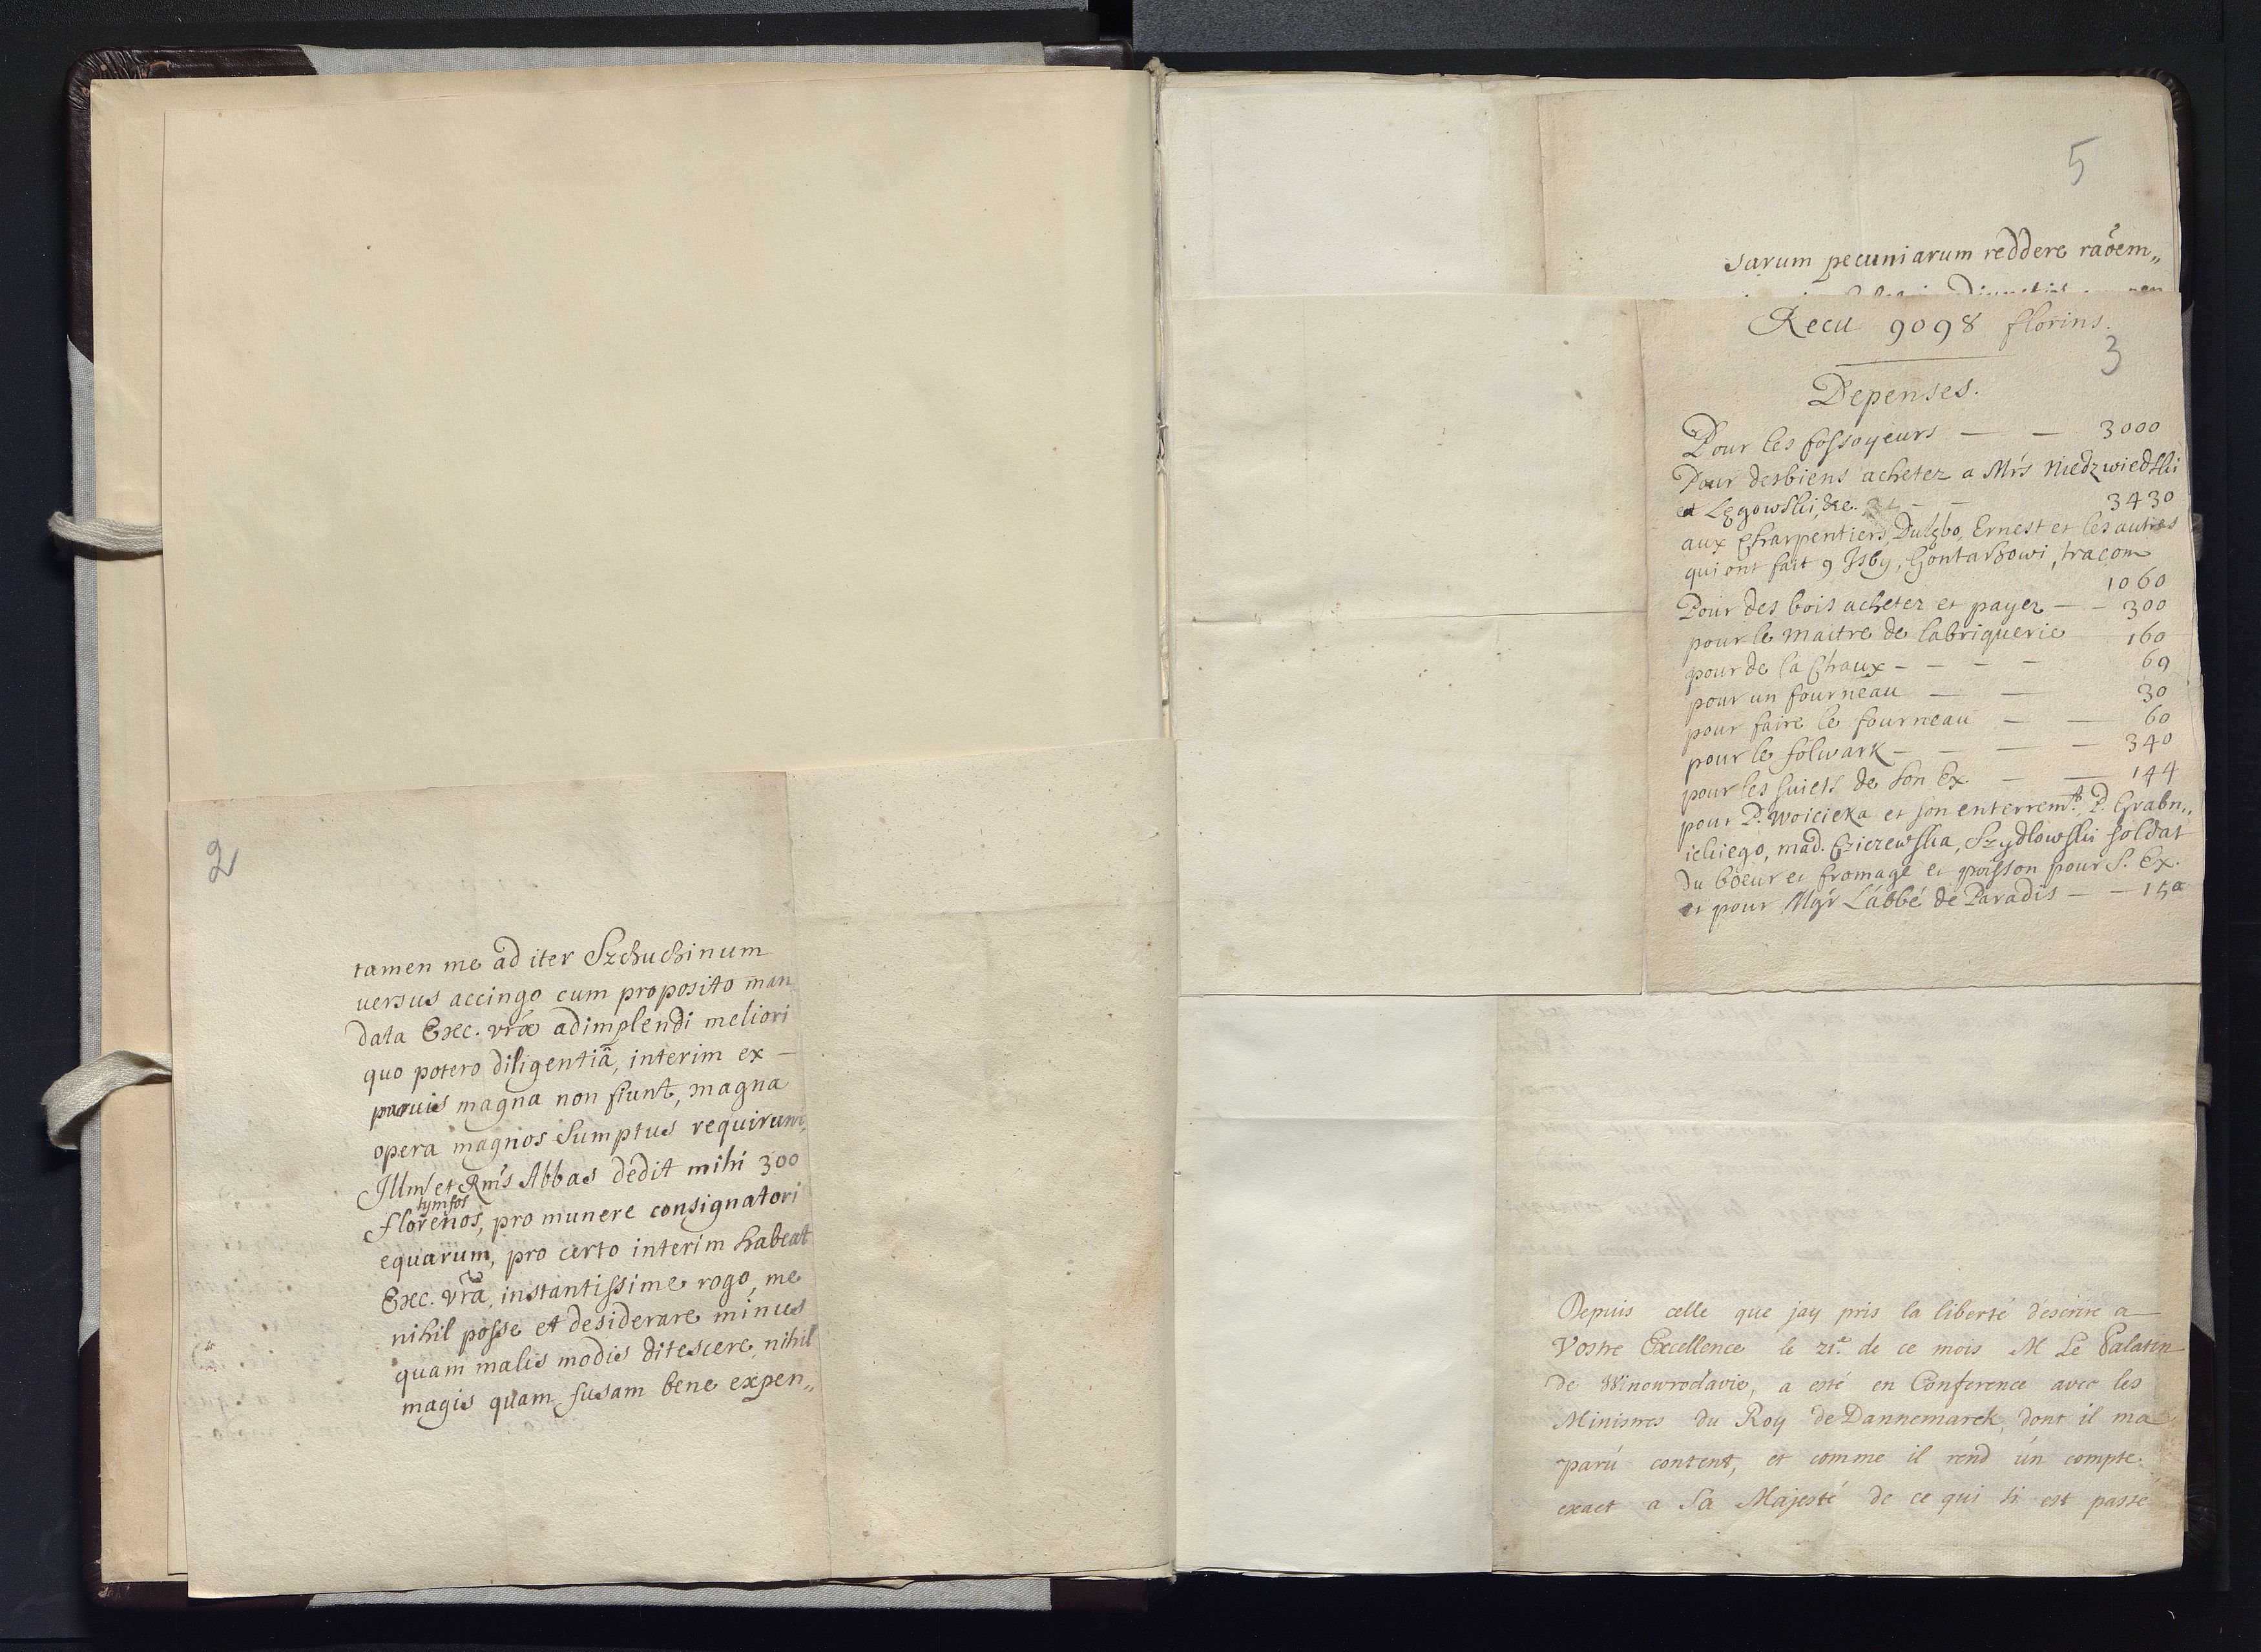 2
tamen me ad iter Szchuchinum
uersus accingo cum proposito man
data Exc. vrae adimplendi meliori
quo potero diligentiâ, interim ex —
paruis magna non fiunt, magna
opera magnos sumptus requirunt,
Illms et Rms Abbas dedit mihi 300
tymfos
florenos, pro munere consignatori
equarum, pro certo interim habeat
Exc. vra, instantissime rogo, me
nihil posse et desiderare minus
quam malis modis ditescere, nihil
magis quam susam bene expen„
5
sarum pecuniarum reddere raõem„
Recu 9098 florins.
3
Depenses.
Pour les fossoyeurs — — 3000
Pour des biens achetez a Mrs Niedzwiedski
et Lęgowski, &c. — — 3430
aux Charpentiers, Dulębo, Ernest et les autres
qui ont fait 9 Isby, Gontarzowi, tracom
1060
Pour des bois achetez et payez — — 300
pour le maitre de labriquerie 160
pour de la Chaux — — — — 69
pour un fourneau — — 30
pour faire le fourneau — — 60
pour le folwark — — — — 340
pour les suiets de Son Ex. — — 144
pour P. Woicieka et son enterremt. P. Grabn„
ickiego, mad. Cziczewska, Szydlowski soldat
du boeur et fromage et poisson pour S. Ex.
et pour Mgr L'abbé de Paradis — — 150
Depuis celle que jay pris la liberté descrire a
Vostre Excellence le 21e. de ce mois M Le Palatin
de Winowroclavie, a esté en Conference avec les
Ministres du Roy de Dannemarck, dont il ma
parú content, et comme il rend ún compte
exact a Sa Majesté de ce qui si est passé